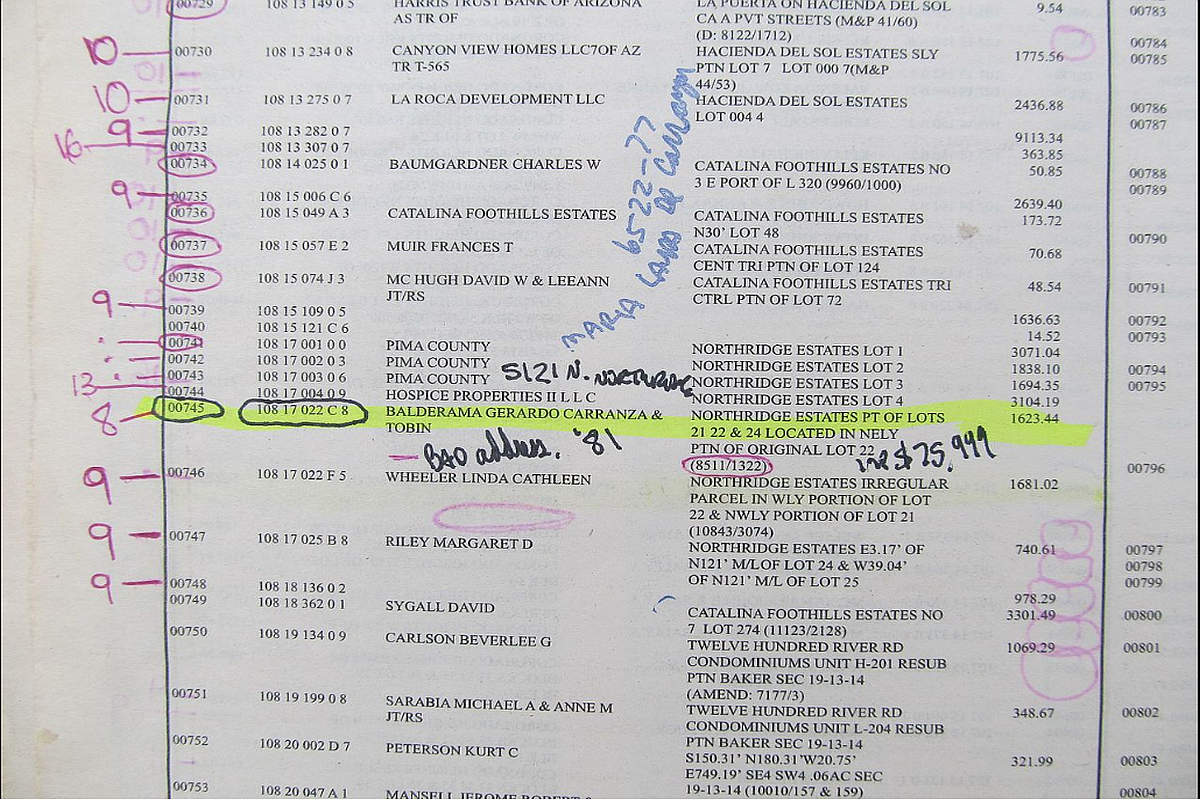 00729 108 13 149 0 5 HARRIS TRUST BANK OF ARIZONA LA PUERTA ON HACIENDA DEL SOL 9.54 00783
AS TR OF CA A PVT STREETS (M&P 41/60)
(D: 8122/1712) 00784
10 — 00730 108 13 234 0 8 CANYON VIEW HOMES LLC7OF AZ HACIENDA DEL SOL ESTATES SLY 1775.56 00785
TR T-565 PTN LOT 7 LOT 000 7(M&P
44/53)
10 — 00731 108 13 275 0 7 LA ROCA DEVELOPMENT LLC HACIENDA DEL SOL ESTATES 2436.88 00786
LOT 004 4 00787
9 — 00732 108 13 282 0 7 9113.34
16 — 00733 108 13 307 0 7 363.85
00734 108 14 025 0 1 BAUMGARDNER CHARLES W CATALINA FOOTHILLS ESTATES NO 50.85 00788
3 E PORT OF L 320 (9960/1000) 00789
9 — 00735 108 15 006 C 6 2639.40
00736 108 15 049 A 3 CATALINA FOOTHILLS ESTATES CATALINA FOOTHILLS ESTATES 173.72
N30' LOT 48 00790
00737 108 15 057 E 2 MUIR FRANCES T CATALINA FOOTHILLS ESTATES 70.68
CENT TRI PTN OF LOT 124
00738 108 15 074 J 3 MC HUGH DAVID W & LEEANN CATALINA FOOTHILLS ESTATES TRI 48.54 00791
JT/RS CTRL PTN OF LOT 72
9 — 00739 108 15 109 0 5 1636.63 00792
00740 108 15 121 C 6 14.52 00793
00741 108 17 001 0 0 PIMA COUNTY NORTHRIDGE ESTATES LOT 1 3071.04
00742 108 17 002 0 3 PIMA COUNTY NORTHRIDGE ESTATES LOT 2 1838.10 00794
00743 108 17 003 0 6 PIMA COUNTY NORTHRIDGE ESTATES LOT 3 1694.35 00795
13 — 00744 108 17 004 0 9 HOSPICE PROPERTIES II L L C NORTHRIDGE ESTATES LOT 4 3104.19
65-22-77
MARIA DE CARRANZA
5121 N. NORTHRIDGE
8 — 00745 108 17 022 C 8 BALDERAMA GERARDO CARRANZA & NORTHRIDGE ESTATES PT OF LOTS 1623.44
TOBIN 21 22 & 24 LOCATED IN NELY
PTN OF ORIGINAL LOT 22
— BAD address. '81 (8511/1322) $25,999
00796
9 — 00746 108 17 022 F 5 WHEELER LINDA CATHLEEN NORTHRIDGE ESTATES IRREGULAR 1681.02
PARCEL IN WLY PORTION OF LOT
22 & NWLY PORTION OF LOT 21
(10843/3074)
9 — 00747 108 17 025 B 8 RILEY MARGARET D NORTHRIDGE ESTATES E3.17' OF 740.61 00797
N121' M/LOF LOT 24 & W39.04' 00798
OF N121' M/L OF LOT 25 00799
9 — 00748 108 18 136 0 2 978.29
00749 108 18 362 0 1 SYGALL DAVID CATALINA FOOTHILLS ESTATES NO 3301.49 00800
7 LOT 274 (11123/2128)
00750 108 19 134 0 9 CARLSON BEVERLEE G TWELVE HUNDRED RIVER RD 1069.29 00801
CONDOMINIUMS UNIT H-201 RESUB
PTN BAKER SEC 19-13-14
(AMEND: 7177/3)
00751 108 19 199 0 8 SARABIA MICHAEL A & ANNE M TWELVE HUNDRED RIVER RD 348.67 00802
JT/RS CONDOMINIUMS UNIT L-204 RESUB
PTN BAKER SEC 19-13-14
00752 108 20 002 D 7 PETERSON KURT C S150.31' N180.31'W20.75' 321.99 00803
E749.19' SE4 SW4 .06AC SEC
19-13-14 (10010/157 & 159)
00753 108 20 047 A 1 MANSELL JEROME ROBERT & 00804